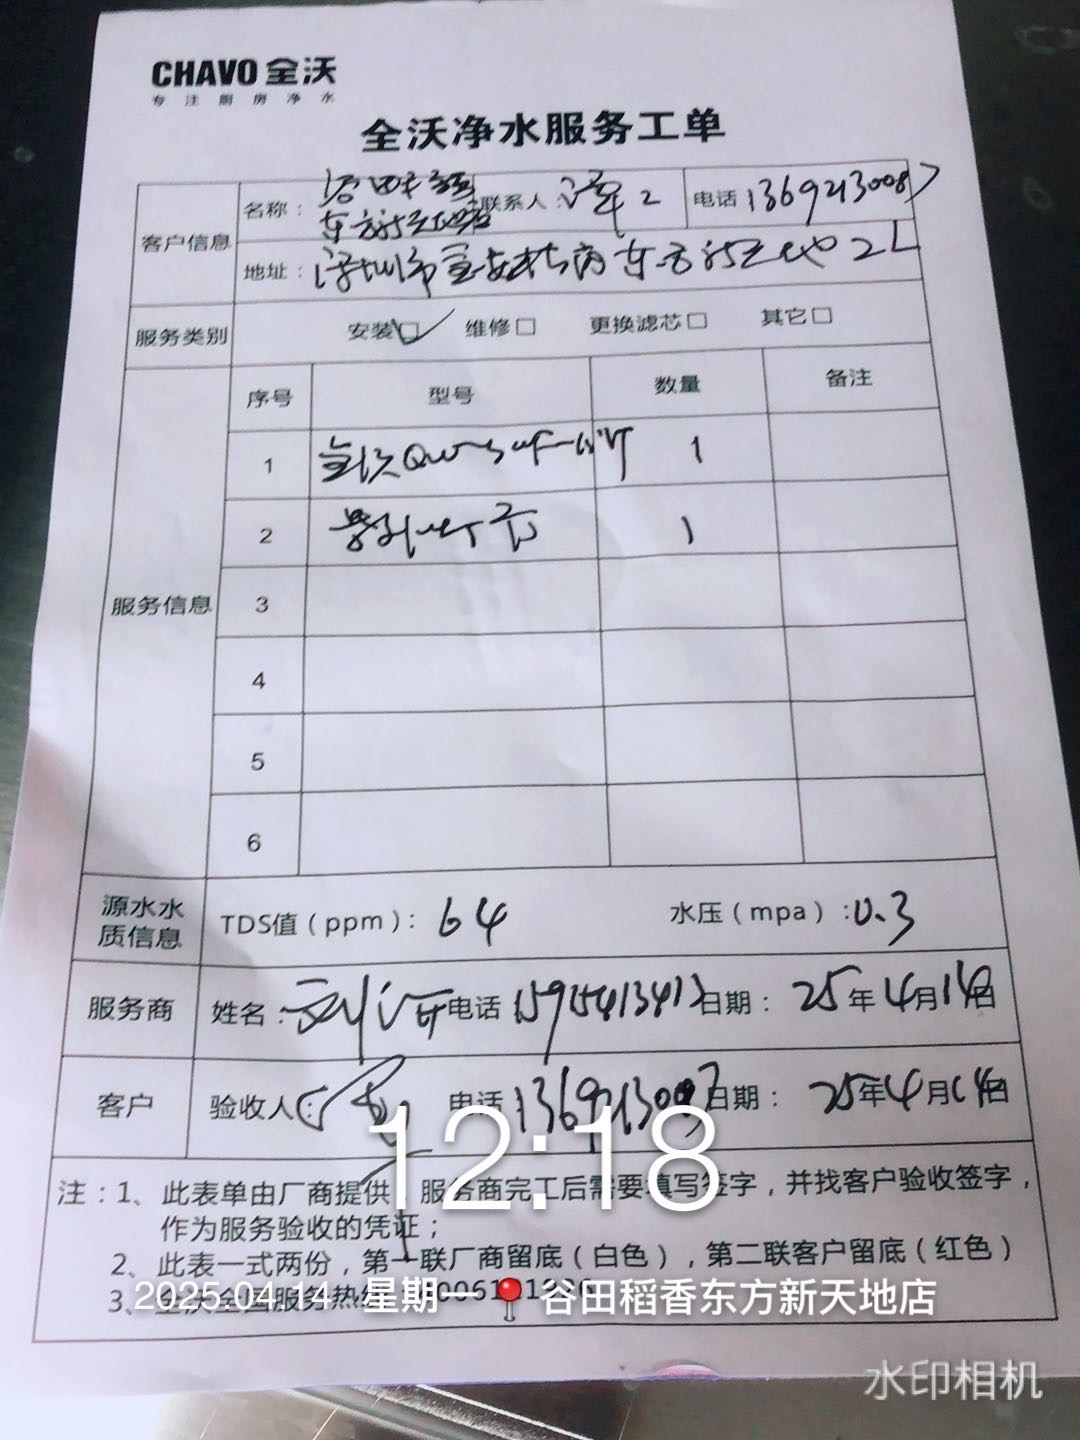 CHAVO 全沃
专注厨房净水
全沃净水服务工单
客户信息
名称：谷田稻香
东方新天地店
联系人：
电话
地址：深圳市宝安 东方新天地2L
服务类别
安装☑ 维修□ 更换滤芯□ 其它□
服务信息
序号 型号 数量 备注
1 全沃 1
2 1
3
4
5
6
源水水质信息
TDS值（ppm）：64 水压（mpa）：0.3
服务商 姓名： 电话 日期：25年4月14日
客户 验收人： 电话 日期：25年4月14日
12:18
注：1、此表单由厂商提供，服务商完工后需要填写签字，并找客户验收签字，
作为服务验收的凭证；
2、此表一式两份，第一联厂商留底（白色），第二联客户留底（红色）
3、全沃全国服务热线
2025.04.14 星期一 谷田稻香东方新天地店
水印相机